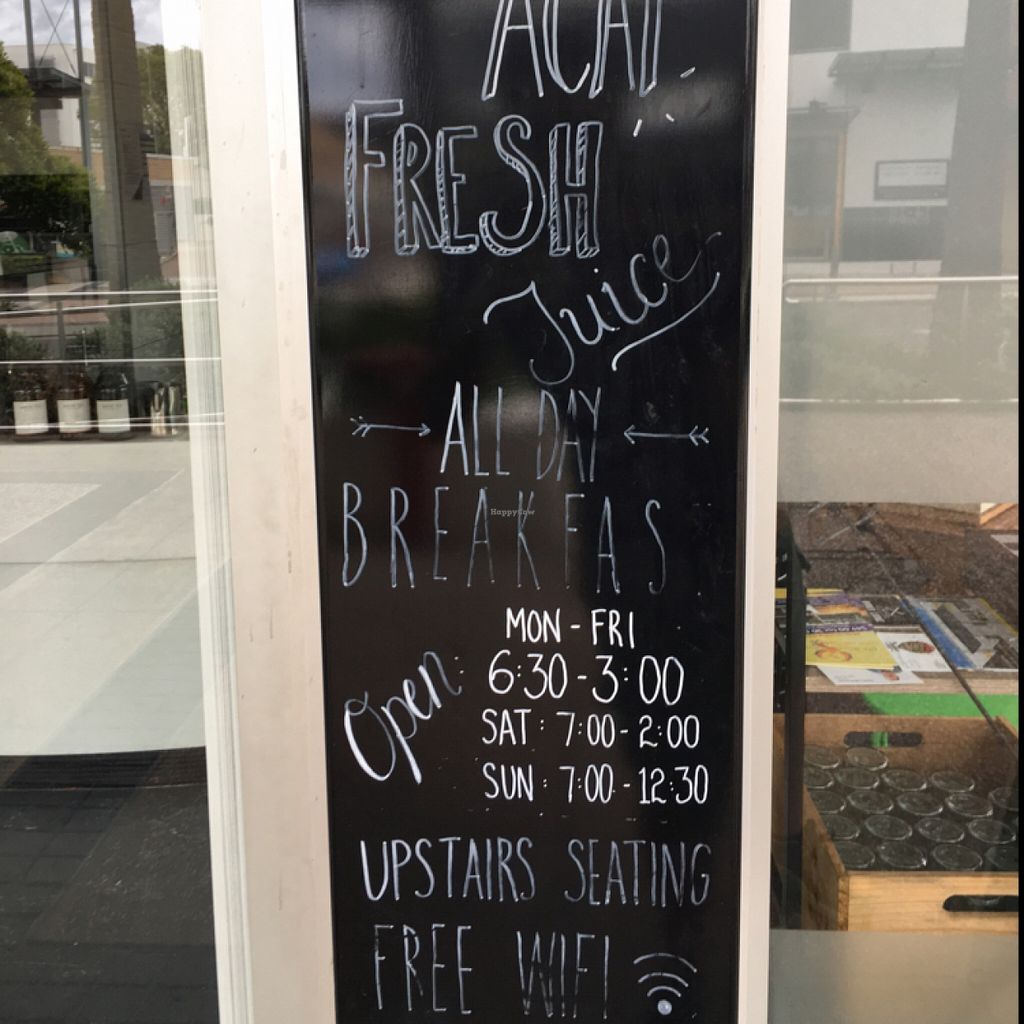 ACAI
FRESH
Juice
ALL DAY
BREAKFAS
HappyCow
Open:
MON - FRI
6:30 - 3:00
SAT : 7:00 - 2:00
SUN : 7:00 - 12:30
UPSTAIRS SEATING
FREE WIFI